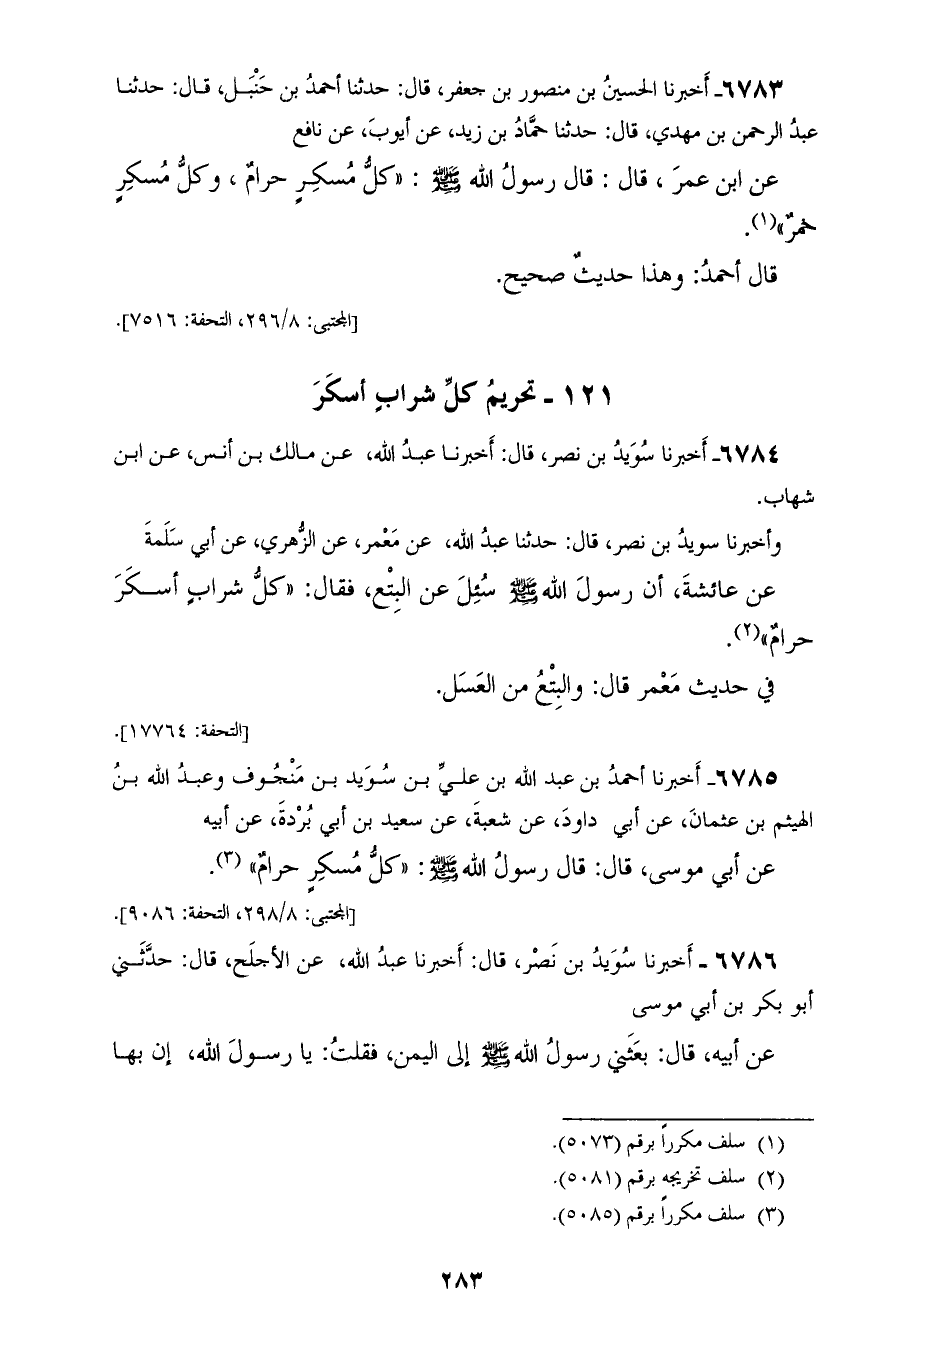 ٦٧٨٣ـ أَخبرنا الحسينُ بن منصور بن جعفر، قال: حدثنا أحمدُ بن حَنْبَـل، قـال: حدثنـا
عبدُ الرحمن بن مهدي، قال: حدثنا حمَّادُ بن زيد، عن أيوبَ، عن نافع
عن ابن عمرَ ، قال : قال رسولُ الله ﷺ : «كلُّ مُسكِـرٍ حرامٌ ، وكلُّ مُسكِرٍ
خمرٌ»(١).
قال أحمدُ: وهذا حديثٌ صحيح.
[المجتبى: ٢٩٦/٨، التحفة: ٧٥١٦].
١٢١ ـ تحريمُ كلِّ شرابٍ أسكَرَ
٦٧٨٤ـ أَخبرنا سُوَيدُ بن نصر، قال: أَخبرنـا عبـدُ الله، عـن مـالك بـن أنـس، عـن ابـن
شهاب.
وأخبرنا سويدُ بن نصر، قال: حدثنا عبدُ الله، عن مَعْمر، عن الزُّهري، عن أبي سَلَمةَ
عن عائشةَ، أن رسولَ الله ﷺ سُئِلَ عن البِتْع، فقال: «كلُّ شرابٍ أسـكَرَ
حرامٌ»(٢).
في حديث مَعْمر قال: والبِتْعُ من العَسَل.
[التحفة: ١٧٧٦٤].
٦٧٨٥ـ أَخبرنا أحمدُ بن عبد الله بن علـيِّ بـن سُـوَيد بـن مَنْجُـوف وعبـدُ الله بـنُ
الهيثم بن عثمانَ، عن أبي داودَ، عن شعبةَ، عن سعيد بن أبي بُرْدةَ، عن أبيه
عن أبي موسى، قال: قال رسولُ الله ﷺ: «كلُّ مُسكرٍ حرامٌ» (٣).
[المجتبى: ٢٩٨/٨، التحفة: ٩٠٨٦].
٦٧٨٦ ـ أَخبرنا سُوَيدُ بن نَصْر، قال: أَخبرنا عبدُ الله، عن الأجلَح، قال: حدَّثَـني
أبو بكر بن أبي موسى
عن أبيه، قال: بعَثَني رسولُ الله ﷺ إلى اليمن، فقلتُ: يا رسـولَ الله، إن بهـا
(١) سلف مكرراً برقم (٥٠٧٣).
(٢) سلف تخريجه برقم (٥٠٨١).
(٣) سلف مكرراً برقم (٥٠٨٥).
٢٨٣